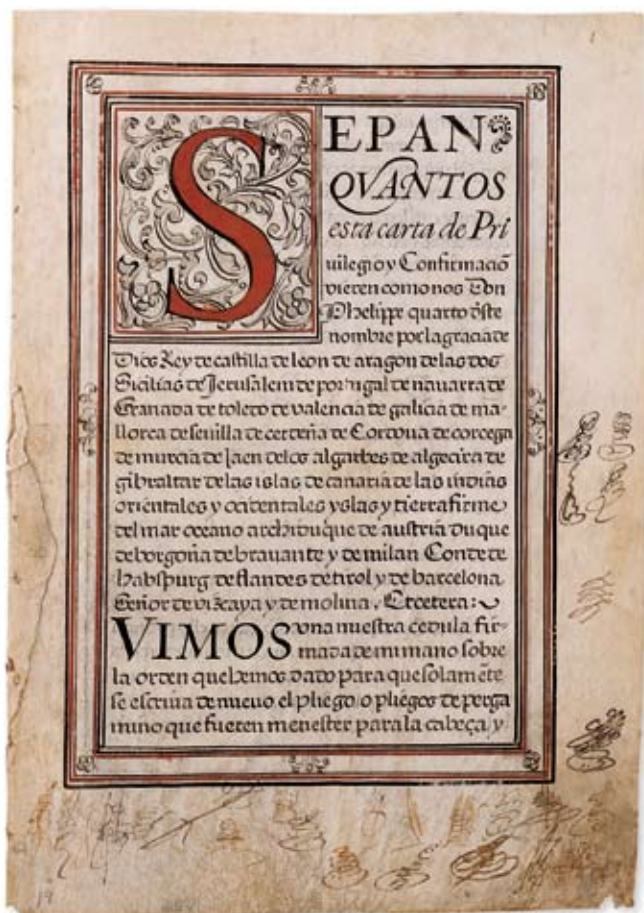 SEPAN
QVANTOS
esta carta de Pri
uilegio y Confirmaciõ
vieren como nos Don
Phelippe quarto dẽste
nombre por la gracia de
Dios Rey de castilla de leon de aragon de las dos
Sicilias de Jerusalem de portugal de nauarra de
Granada de toledo de valencia de galicia de ma-
llorca de seuilla de cerdeña de Cordoua de corcega
de murcia de Iaen delos algarbes de algecira de
gibraltar de las islas de canaria de las indias
orientales y ocidentales yslas y tierra firme
del mar oceano archiduque de austria duque
de borgoña de brauante y de milan Conde de
habspurg de flandes de tirol y de barcelona
Señor de vizcaya y de molina, Etcetera:
VIMOS vna nuestra cedula fir-
mada de mi mano sobre
la orden que hemos dado para que solamẽte
se escriua de nueuo el pliego o pliegos de perga
mino que fueren menester para la cabeça y
19